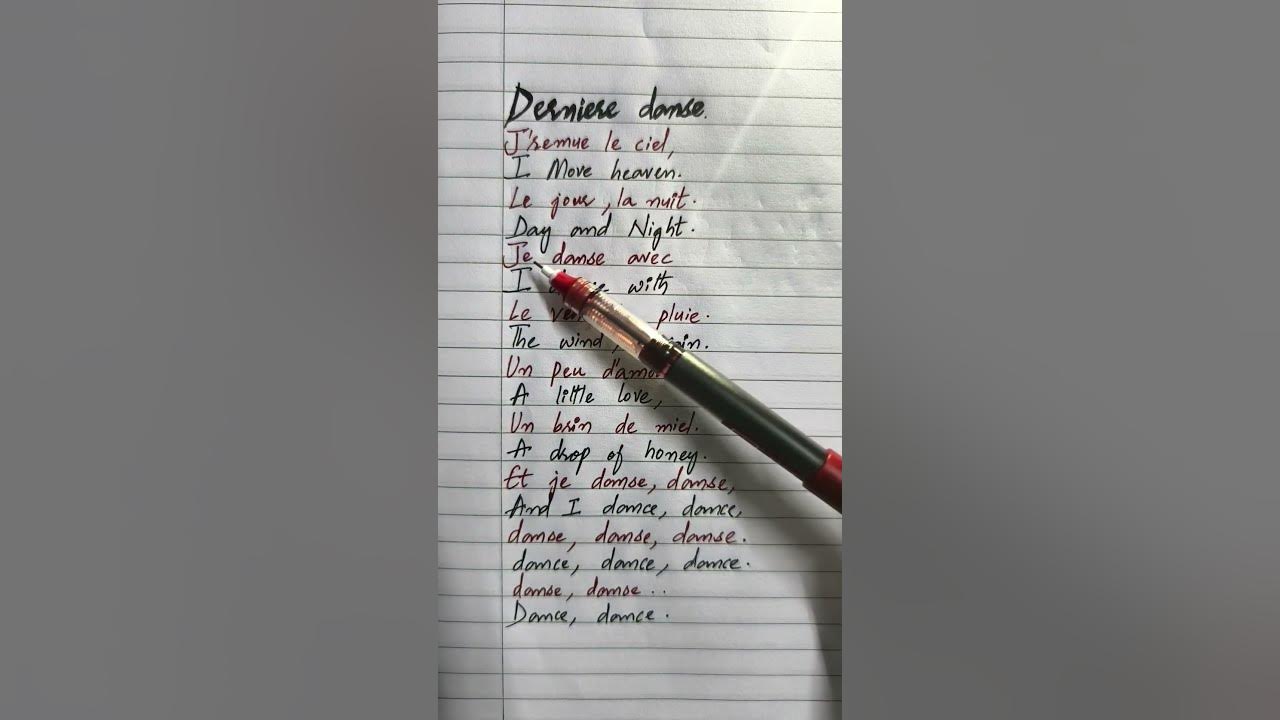 Derniere danse.
J'remue le ciel,
I Move heaven.
Le jour, la nuit.
Day and Night.
Je danse avec
I with
Le pluie.
The wind,
Un peu
A little love,
Un brin de miel.
A drop of honey.
Et je danse, danse,
And I dance, dance,
danse, danse, danse.
dance, dance, dance.
danse, danse..
Dance, dance.